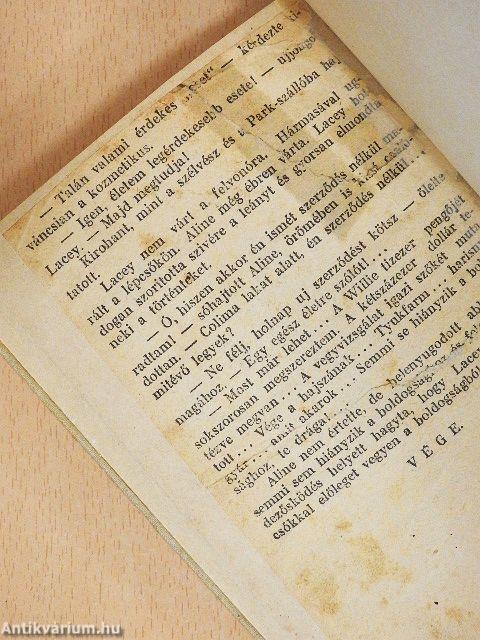 — Talán valami érdekes eset" — kérdezte kí-
váncsian a kozmetikus.
— Igen, életem legérdekesebb esete! — ujjongo
Lacey. — Majd megtudja!
Kirohant, mint a szélvész és a Park-szállóba haj
tatott.
Lacey nem várt a felvonóra. Hármasával ug-
rált a lépcsőkön. Aline még ébren várta. Lacey bol-
dogan szorította szivére a leányt és gyorsan elmondta
neki a történteket.
— Ó, hiszen akkor én ismét szerződés nélkül ma-
radtam! — sóhajtott Aline, örömében is
dottan. — Colima lakat alatt, én szerződés nélkül...
mitévő legyek?
— Ne félj, holnap uj szerződést kötsz — ölelte
magához. — Egy egész életre szólót!...
— Most már lehet... A Willie tizezer pengőjét
sokszorosan megszereztem. A kétszázezer dollár le-
tézve megvan... A vegyvizsgálat igazi szőkét muta
tott... Vége a hajszának... Tyukfarm... harisny
gyár... amit akarok... Semmi se hiányzik a bol
sághoz, te drága!
Aline nem értette, de belenyugodott ab
semmi sem hiányzik a boldogság
dezősködés helyett hagyta, hogy Lacey
csókkal előleget vegyen a boldogságból
VÉGE.
Antikvárium.hu